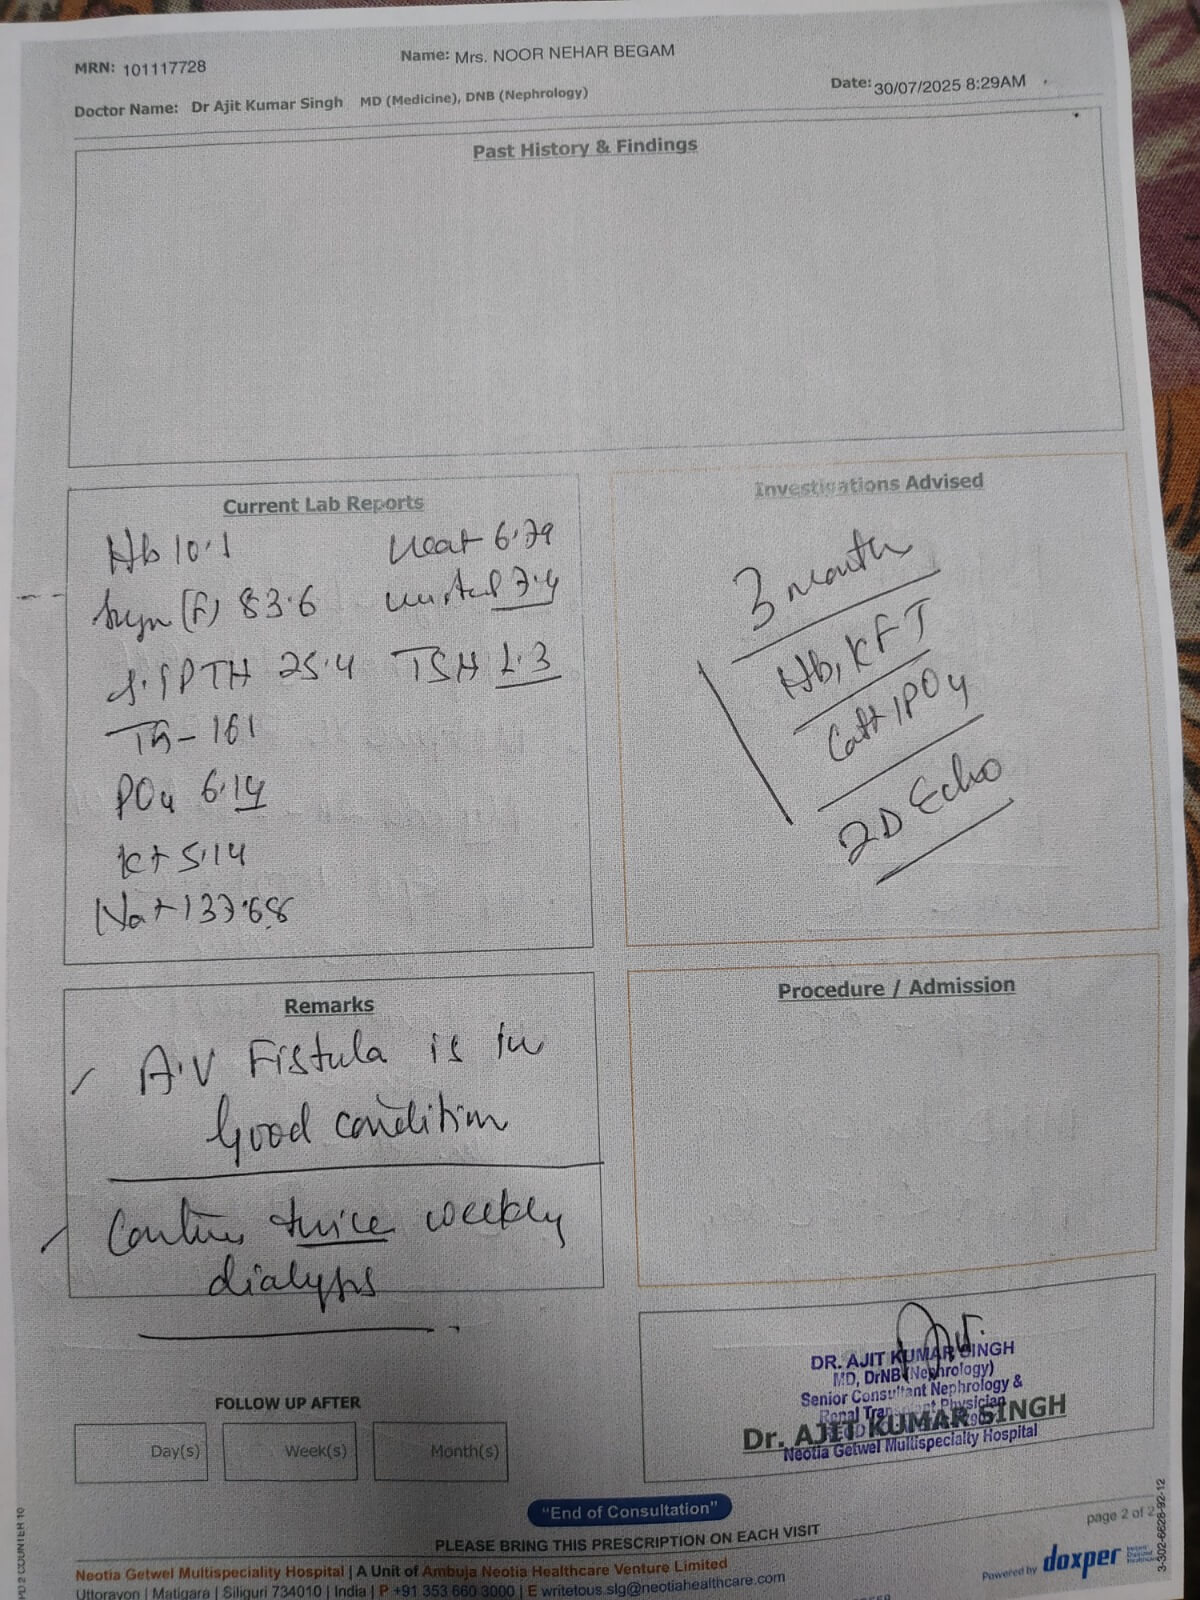 MRN: 101117728
Name: Mrs. NOOR NEHAR BEGAM
Doctor Name: Dr Ajit Kumar Singh MD (Medicine), DNB (Nephrology)
Date: 30/07/2025 8:29AM
Past History & Findings
Current Lab Reports
Hb 10.1
(F) 83.6
S.iPTH 25.4
TG - 161
PO4 6.14
K+ 5.14
Na+ 137.68
Ucat 6.79
7.4
TSH 2.3
Investigations Advised
3 month
Hb, KFT
Ca++ 1PO4
2D Echo
Remarks
A.V Fistula is in
Good condition
Continue twice weekly
dialysis
Procedure / Admission
FOLLOW UP AFTER
Day(s)
Week(s)
Month(s)
DR. AJIT KUMAR SINGH
MD, DrNB (Nephrology)
Senior Consultant Nephrology &
Renal Transplant Physician
Dr. AJIT KUMAR SINGH
Neotia Getwel Multispecialty Hospital
"End of Consultation"
PLEASE BRING THIS PRESCRIPTION ON EACH VISIT
page 2 of 2
Neotia Getwel Multispecialty Hospital | A Unit of Ambuja Neotia Healthcare Venture Limited
Uttorayon | Matigara | Siliguri 734010 | India | P +91 353 660 3000 | E writetous.slg@neotiahealthcare.com
Powered by doxper
3-302-6628-92-12
2 COUNTER 10